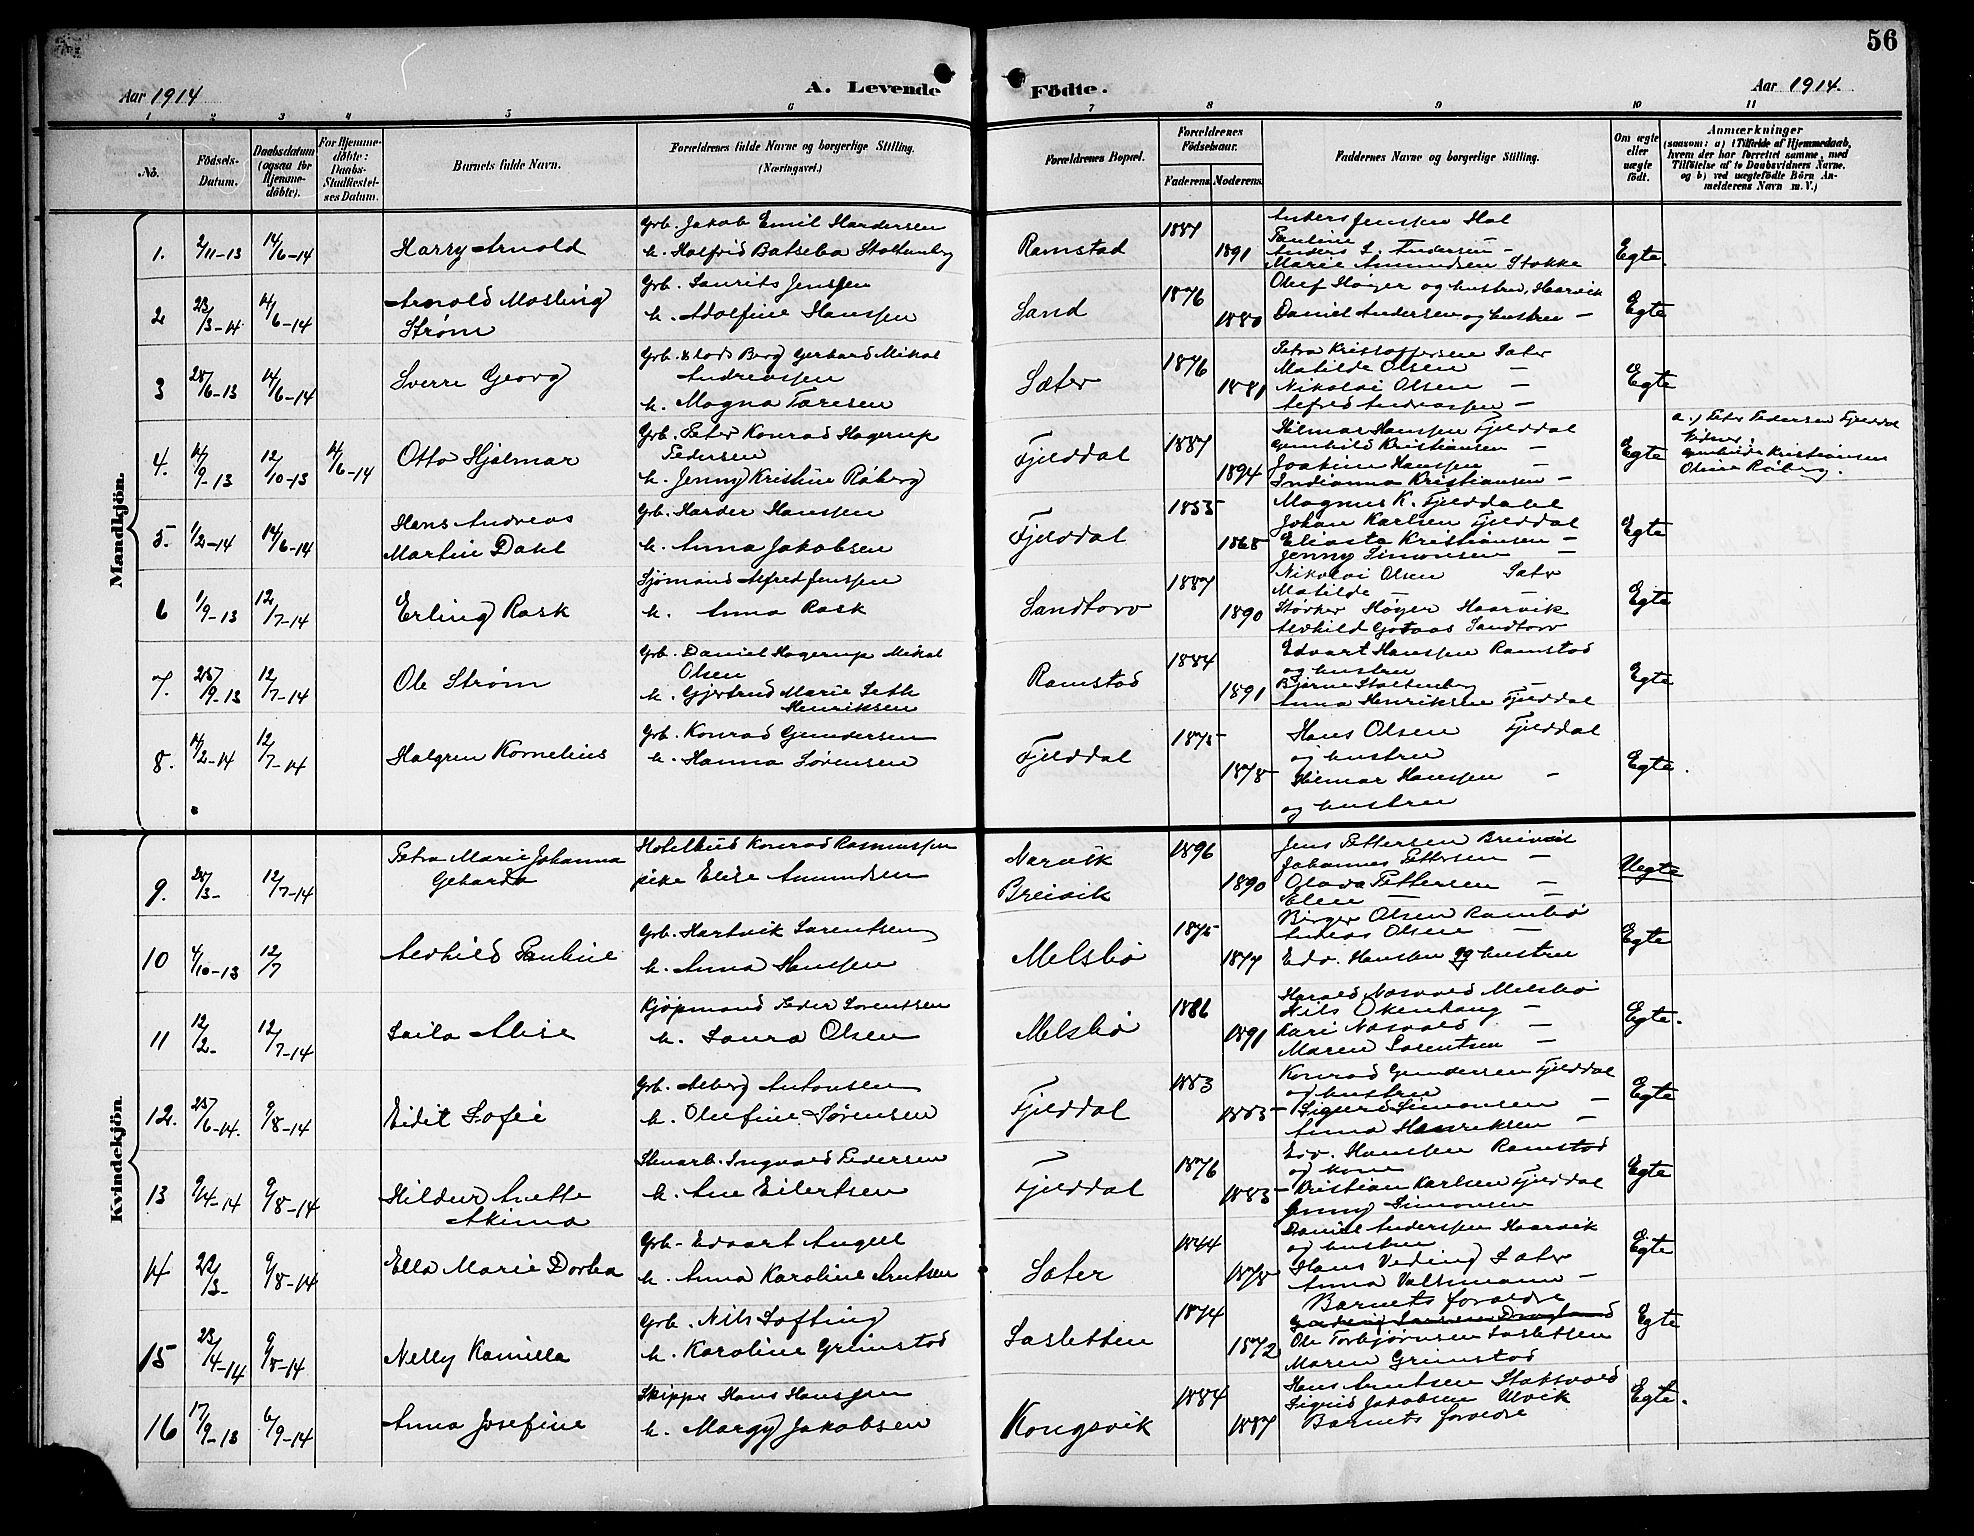 56
Aar 1914
A. Levende Födte.
Aar 1914.
1 2 3 4 5 6 7 8 9 10 11
No.
Födsels-Datum.
Daabsdatum (ogsaa for Hjemme-döbte).
For Hjemme-döbte: Daabs-Stadfæstel-ses Datum.
Barnets fulde Navn.
Forældrenes fulde Navne og borgerlige Stilling. (Næringsvei.)
Forældrenes Bopæl.
Forældrenes Födselsaar.
Faderens. Moderens.
Faddernes Navne og borgerlige Stilling.
Om ægte eller uægte födt.
Anmærkninger
(saasom: a) i Tilfælde af Hjemmedaab, hvem der har forrettet samme, med Tilföielse af to Daabsvidners Navne, og b) ved uægtefödte Börn An-melderens Navn m. V.)
Mandkjön.
1. 2/11-13 14/6-14 Harry Arnold
Grb. Jakob Emil Hardersen
h. Halfrid Batseba Stoltenberg
Ramstad 1887 1891
Anders Jenssen Hol
Pauline —
Anders L. Andersen —
Marie Amundsen Stokke
Egte.
2 23/3-14 14/6-14 Arnold Masling
Strøm
Grb. Laurits Jenssen
h. Adolfine Hanssen
Sand 1876 1880
Oluf Høyer og hustru, Haarvik
Daniel Andersen og hustru —
Egte
3 25/6-13 14/6-14 Sverre Georg
Grb. Stods Berg Gerhard Mikal
Andreassen
h. Magna Taresen
Sæter 1876 1881
Petra Kristoffersen Sæter
Matilde Olsen —
Nikolai Olsen —
Alfred Andreassen —
Egte
4. 14/9-13 12/10-13 14/6-14 Otto Hjalmar
Grb. Peter Konrad Hagerup
Pedersen
h. Jenny Kristine Råberg
Fjelddal 1887 1894
Hilmar Hanssen Fjelddal
Gunhild Kristiansen —
Joakim Hanssen —
Indianna Kristiansen —
Egte
a.) Peter Pedersen Fjelddal
Vidner:
Gunhilde Kristiansen
Oline Råberg.
5. 1/2-14 14/6-14 Hans Andreas
Martin Dahl
Grb. Harder Hanssen
h. Anna Jakobsen
Fjelddal 1855 1868
Magnus K. Fjelddahl
Johan Karlsen Fjelddal
Eliasta Kristiansen —
Jenny Simonsen —
Egte
6 1/9-13 12/7-14 Erling Rask
Sjømand Alfred Jenssen
h. Anna Rask
Sandtorv 1887 1890
Nikolai Olsen Sæter
Matilde —
Størker Høyer Haarvik
Alvhild Gotaas Sandtorv
Egte
7. 25/9-13 12/7-14 Ole Strøm
Grb. Daniel Hagerup Mikal
Olsen
h. Gjertrud Marie Seth
Henriksen
Ramstad 1884 1891
Edvart Hanssen Ramstad
og hustru
Bjarne Stoltenberg —
Anna Henriksen Fjelddal
Egte
8. 14/2-14 12/7-14 Halgren Kornelius
Grb. Konrad Gundersen
h. Hanna Sørensen
Fjelddal 1875 1878
Hans Olsen Fjelddal
og hustru
Hilmar Hanssen —
og hustru
Egte.
Kvindekjön.
9. 28/3- 12/7-14 Petra Marie Johanna
Geharda
Hotelbud Konrad Rasmussen
pike Elise Amundsen
Narvik
Breivik
1896 1890
Jens Pettersen Breivik
Johannes Pettersen —
Olava Pettersen —
Elen —
Uegte
10 4/10-13 12/7 Alvhild Pauline
Grb. Hartvik Larentsen
h. Anna Hanssen
Melsbø 1875 1877
Birger Olsen Rambø
Andeas Olsen —
Edv. Hanssen og hustru
Egte
11 12/2- 12/7-14 Laila Alise
Kjøpmand Peder Lorentsen
h. Laura Olsen
Melsbø 1886 1891
Harald Nasvald Melsbø
Nils Okenhaug —
Kari Nasvald —
Maren Lorentsen —
Egte.
12. 25/6-14. 9/8-14 Eidit Sofie
Grb. Alberg Antonsen
h. Olufine Sørensen
Fjelddal 1883 1885
Konrad Gundersen Fjelddal
og hustru
Sigurd Simonsen —
Anna Henriksen —
Egte
13 9/4-14 9/8-14 Hildur Anette
Akima
Stenarb. Ingvald Pedersen
h. Ane Eilertsen
Fjelddal 1876 1883
Edv. Hanssen Ramstad
og kone
Kristian Karlsen Fjelddal
Jenny Simonsen
Egte
14 22/3- 9/8-14 Ella Marie Dorbea
Grb. Edvart Angell
h. Anna Karoline Arntsen
Sæter 1844 1878
Daniel Anderssen Haarvik
og hustru
Hans Veding Sæter
Anna Valsmann —
Egte
15 23/4-14 9/8-14 Nelly Kamilla
Grb. Nils Lofting
h. Karoline Grimstad
Lasletten 1874 1872
Barnets foræld​re
Ole Torbjørnsen Lasletten
Maren Grimstad
Egte
16 17/9-13 6/9-14 Anna Josefine
Skipper Hans Hanssen
h. Margy Jakobsen
Kongsvik 1884 1887
Hans Knutsen Staksvold
Sigrid Jakobsen Ulvik
Barnets forældre
Egte.